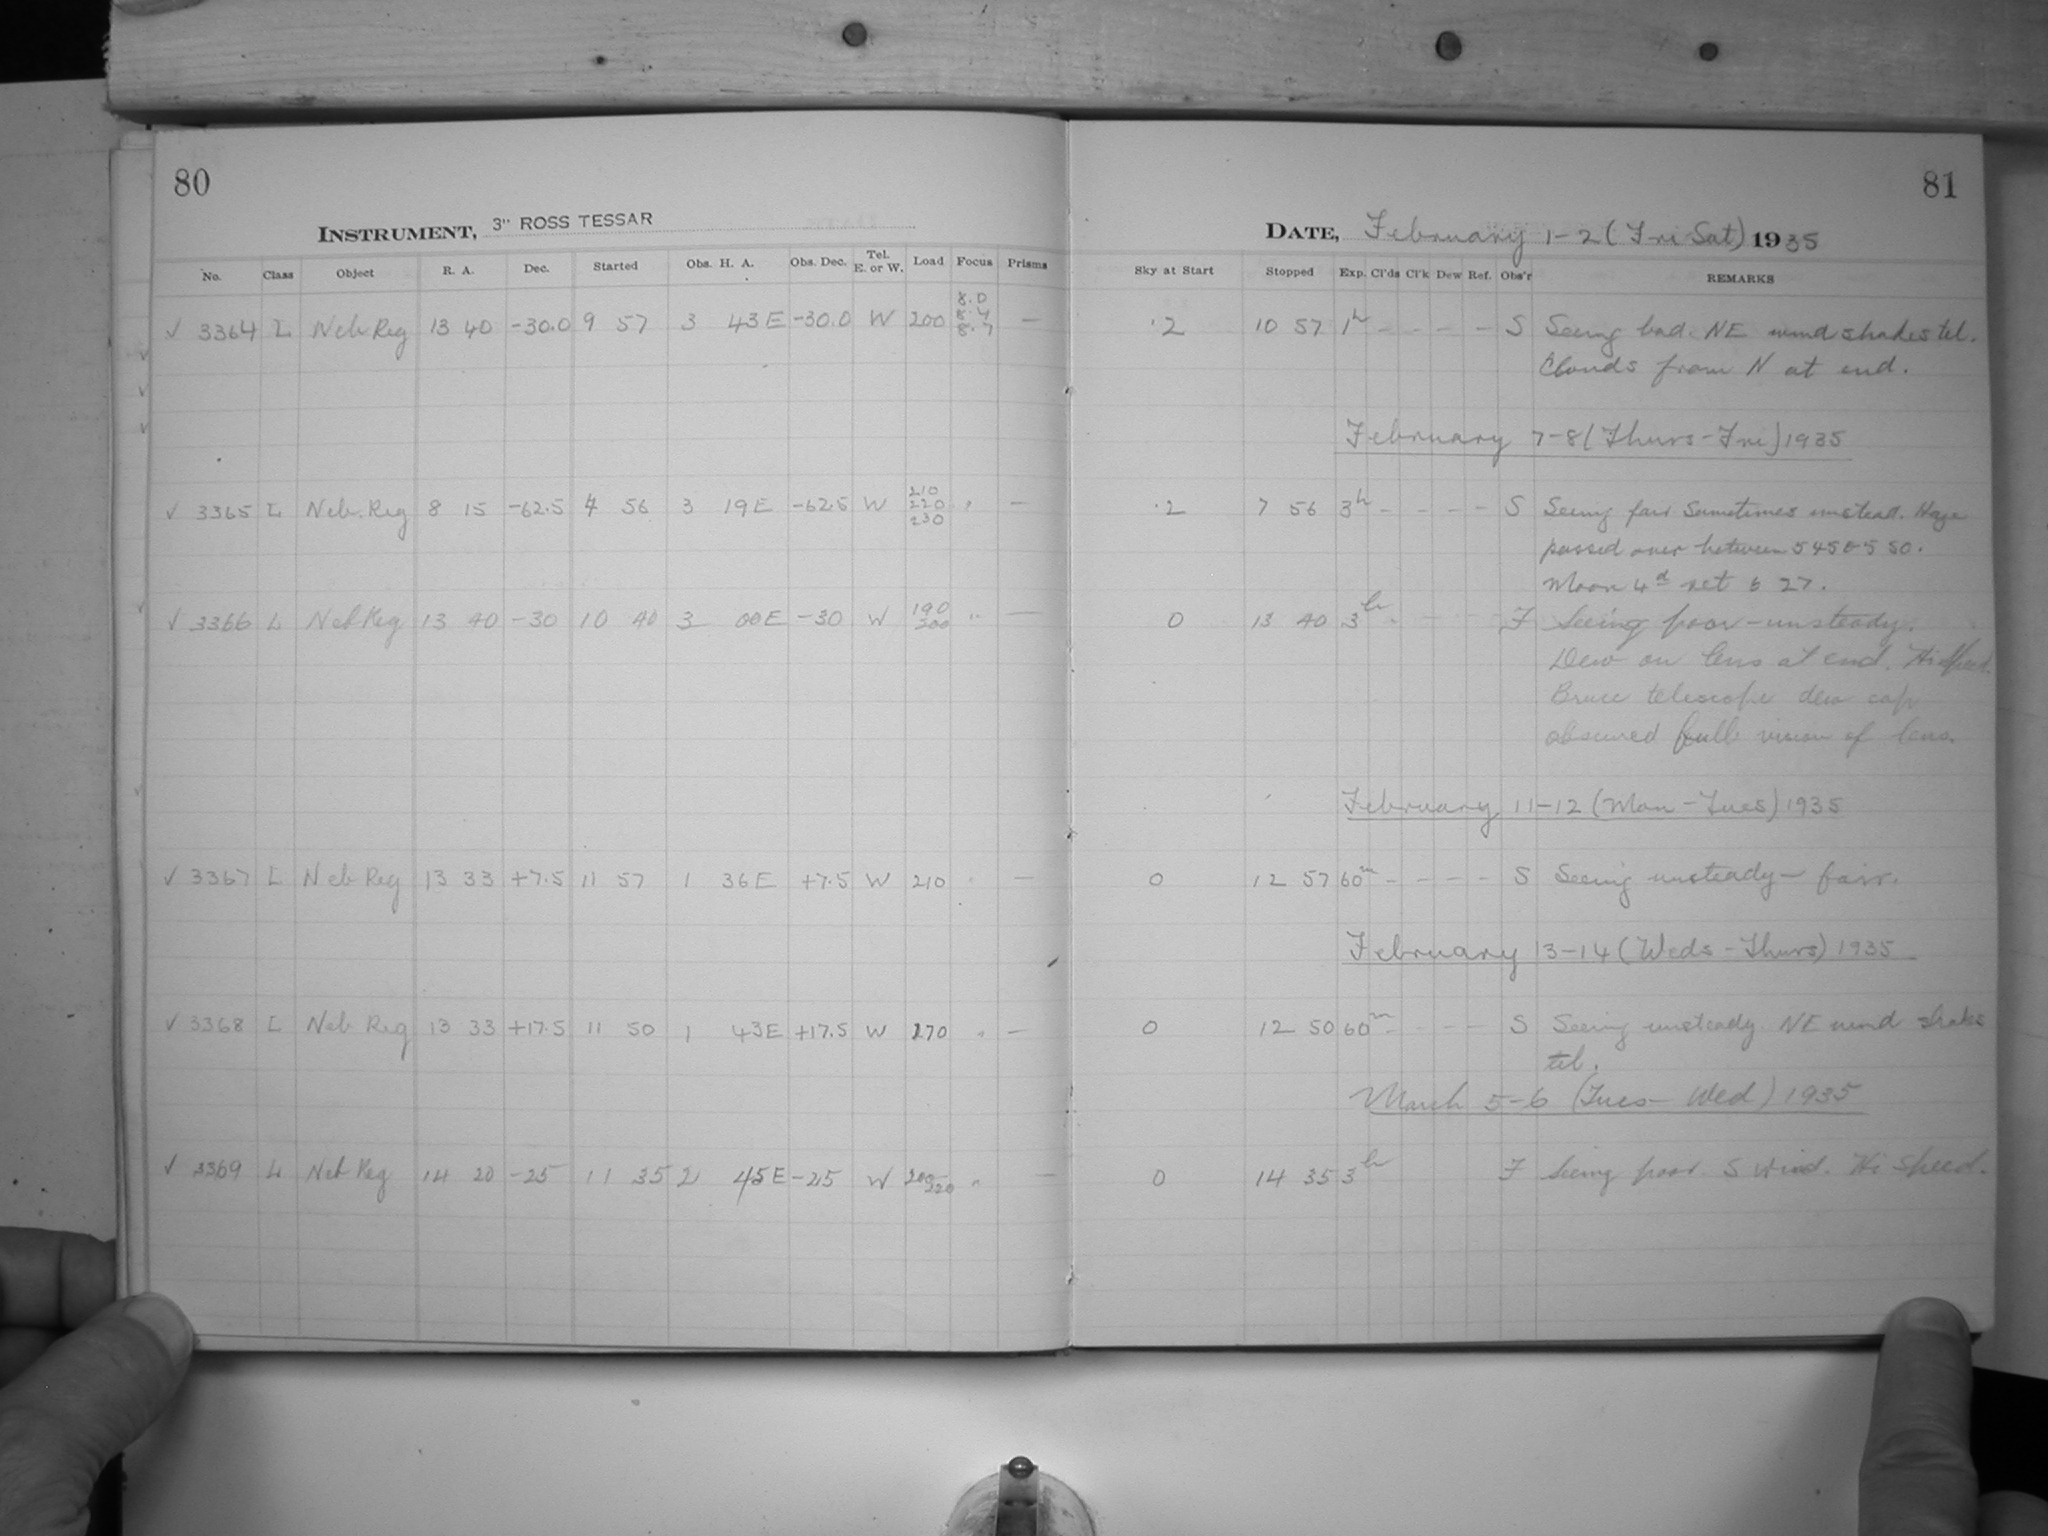 80
INSTRUMENT, 3" ROSS TESSAR
No. Class Object R. A. Dec. Started Obs. H. A. Obs. Dec. Tel. E. or W. Load Focus Prisms
✓ 3364 L Neb. Reg 13 40 -30.0 9 57 3 43 E -30.0 W 200 8.0 8.4 8.7 —
✓ 3365 L Neb. Reg 8 15 -62.5 4 56 3 19 E -62.5 W 210 220 230 " —
✓ 3366 L Neb Reg 13 40 -30 10 40 3 00 E -30 W 190 200 " —
✓ 3367 L Neb Reg 13 33 +7.5 11 57 1 36 E +7.5 W 210 " —
✓ 3368 L Neb Reg 13 33 +17.5 11 50 1 43 E +17.5 W 270 " —
✓ 3369 L Neb Reg 14 20 -25 11 35 2 45 E -25 W 200 220 " —
81
DATE, February 1-2 (Fri Sat) 1935
Sky at Start Stopped Exp. Cl'ds Cl'k Dew Ref. Obs'r REMARKS
.2 10 57 1h - - - - S Seeing bad. NE wind shakes tel.
Clouds from N at end.
February 7-8 (Thurs-Fri) 1935
.2 7 56 3h - - - - S Seeing fair Sometimes unstead. Haze
passed over between 5 45 & 5 50.
Moon 4d set 6 27.
0 13 40 3h - - - F Seeing poor - unsteady.
Dew on lens at end. Hi Speed.
Bruce telescope dew cap
obscured full vision of lens.
February 11-12 (Mon-Tues) 1935
0 12 57 60m - - - - S Seeing unsteady - fair.
February 13-14 (Weds-Thurs) 1935
0 12 50 60m - - - - S Seeing unsteady. NE wind shakes
tel.
March 5-6 (Tues-Wed) 1935
0 14 35 3h F Seeing poor. S Wind. Hi Speed.